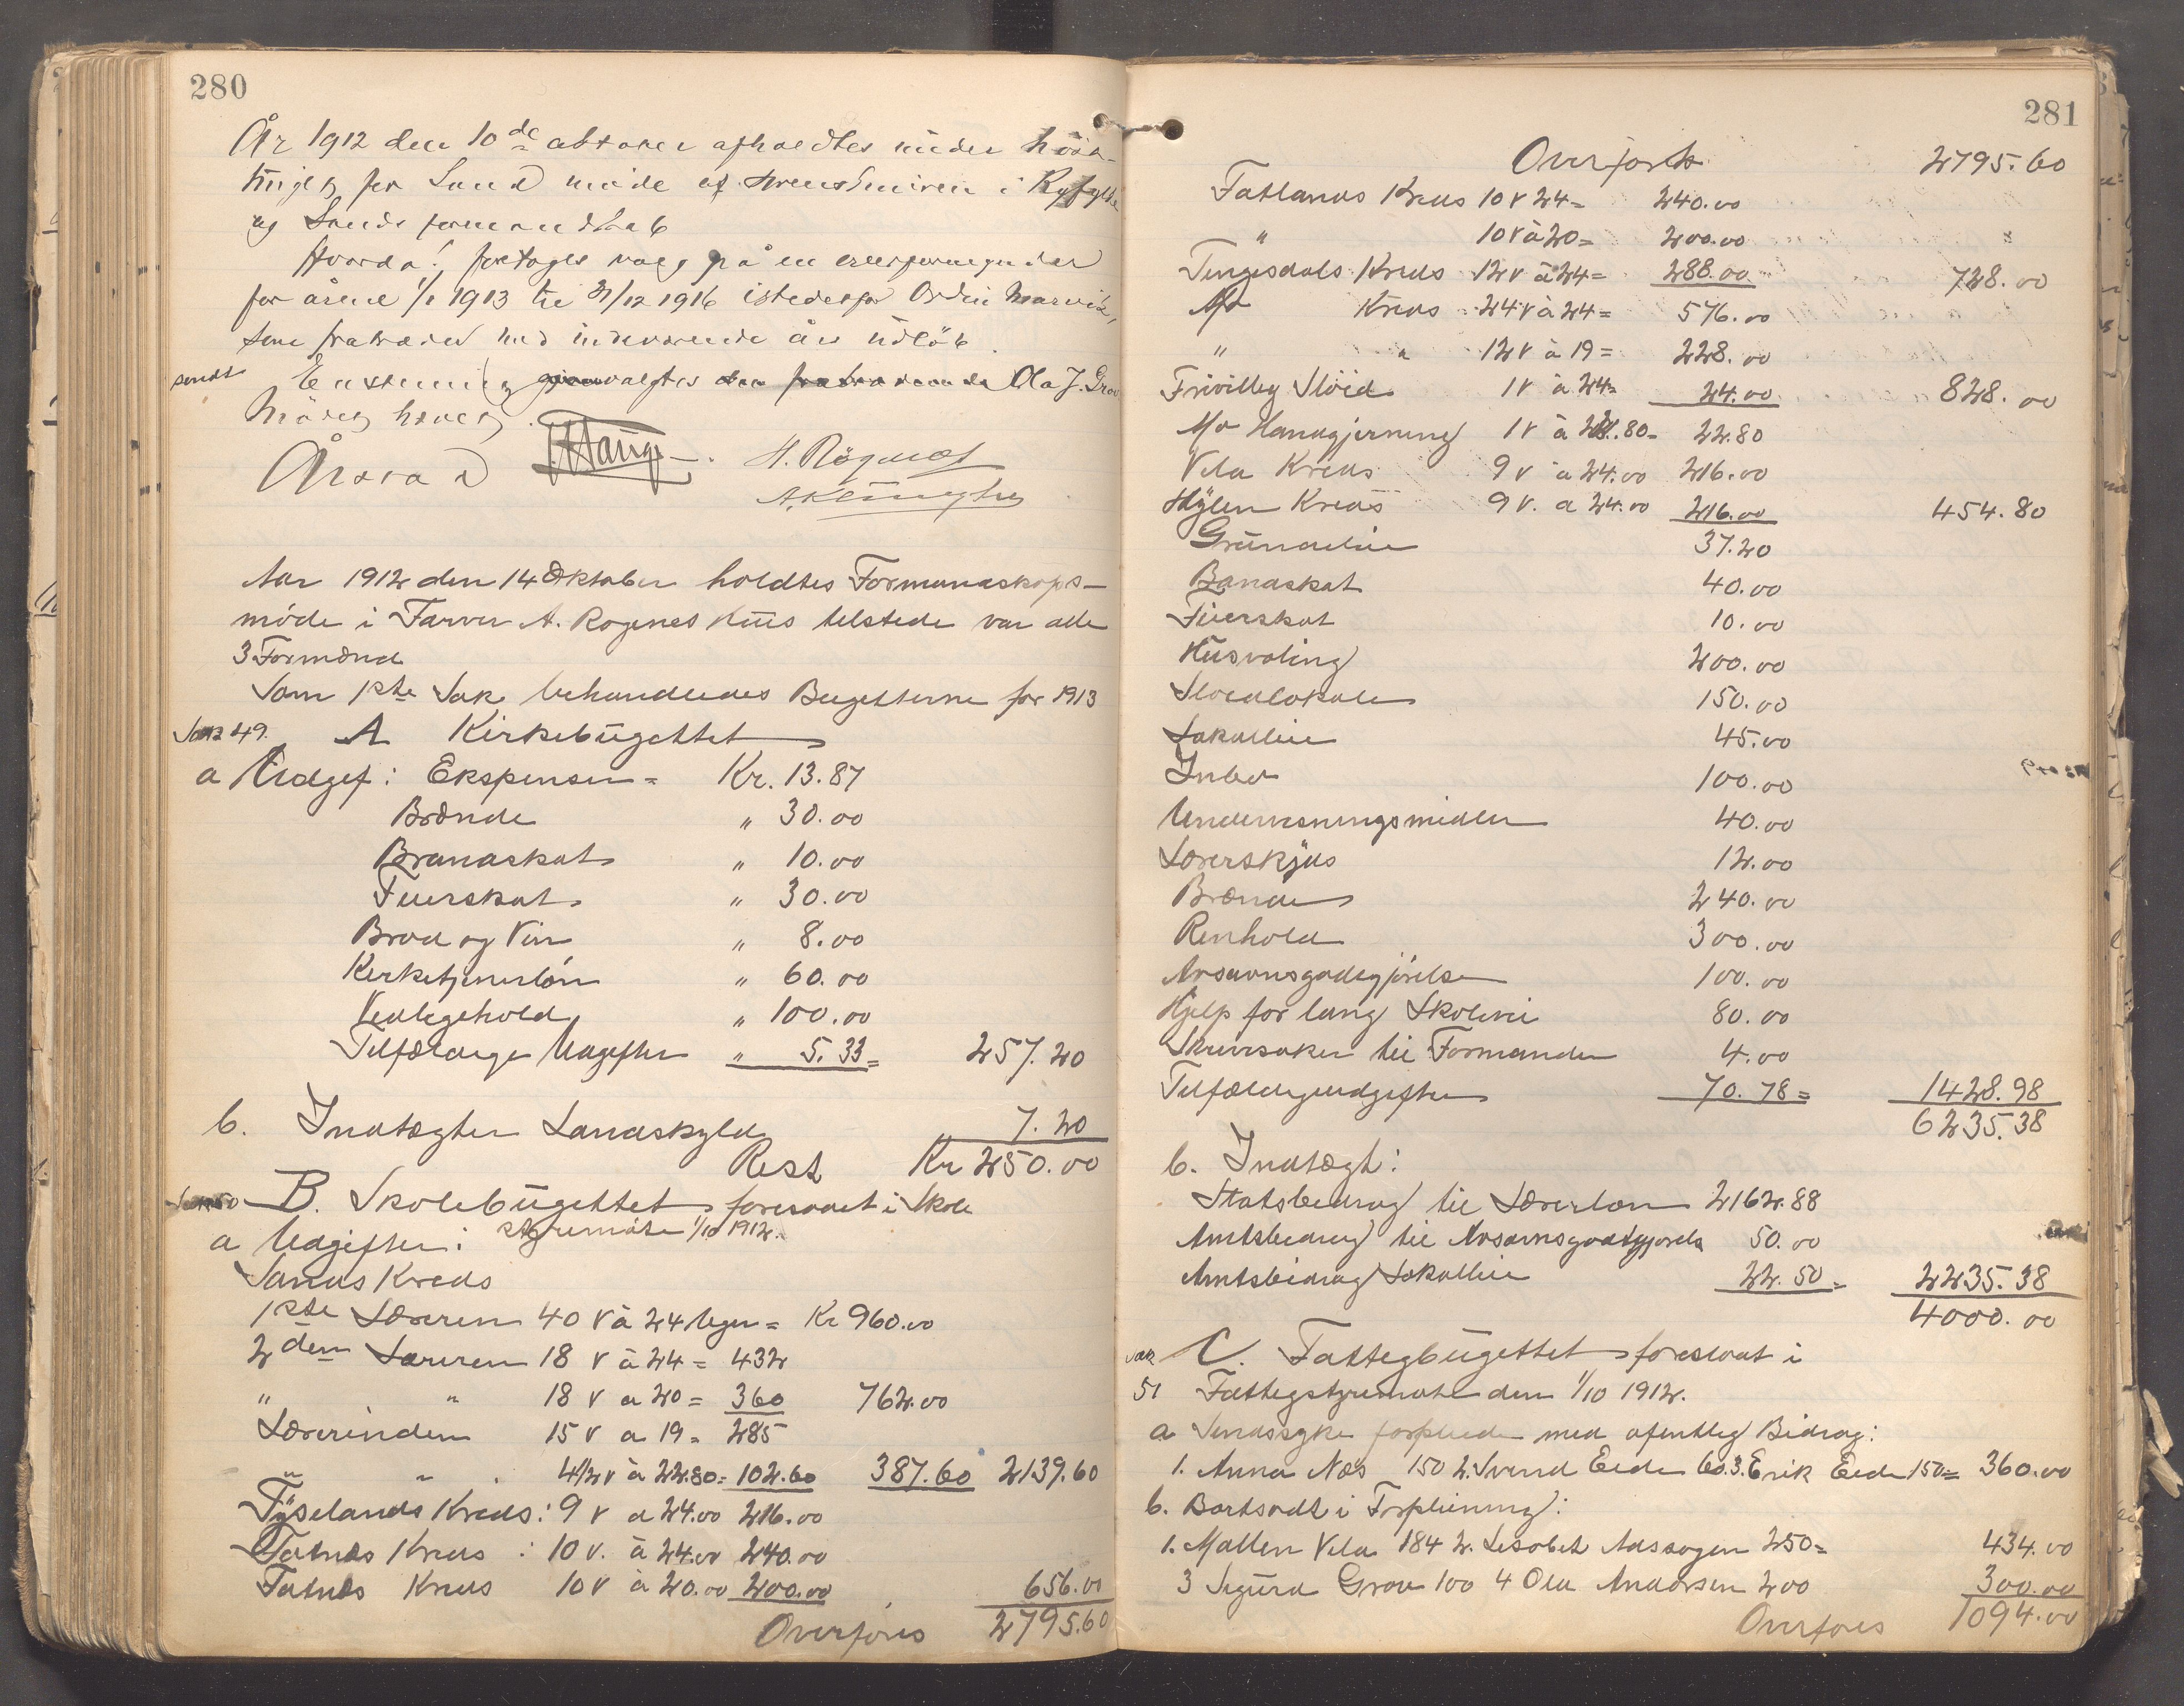 280
År 1912 den 10de oktober afholdtes under høst-
tinget for Sand møde af skrenskriveren i Ryfylke
og Sands formandskab
Hvorda! foretoges valg på en
for årene 1/1 1913 til 31/12 1916 istedetfor Ordf. Marvik,
som fratræder med indeværende års udløb.
Enstemmig valgtes den fratrædende Ola J. Grov
Mødet hævet.
Årsvad Hauge. H. Røgnes
A. Klungtvedt
Aar 1912 den 14 Oktober holdtes Formandskaps-
møde i Farver A. Rogenes Hus tilstede var alle
3 Formænd
Som 1ste Sak behandledes Bugetterne for 1913
Sak 49. A Kirkebugettet
a Udgif: Ekspenser = Kr. 13.87
Brænde " 30.00
Brandskat " 10.00
Feierskat " 30.00
Brød og Vin " 8.00
Kirketjenerløn " 60.00
Vedlegehold " 100.00
Tilfældige Udgifter " 5.33 = 257.20
b. Indtægter Landskyld 7.20
Rest Kr 250.00
Sak 50 B. Skolebugettet foreslaaet i Skole
styremøte 1/10 1912.
a Udgifter:
Sands Kreds
1ste Læreren 40 V à 24 = Kr 960.00
2den Læreren 18 V à 24 = 432
" " 18 V a 20 = 360 762.00
Lærerinden 15 V a 19 = 285
" " 4 1/2 V à 22.80 = 102.60 387.60 2139.60
Tyselands Kreds: 9 V a 24.00 216.00
Fatnes Kreds : 10 V. à 24.00 240.00
Fatnes Kreds 10 V à 20.00 200.00 656.00
Overføres 2795.60
281
Overført 2795.60
Fatlands Kreds 10 V 24 = 240.00
" 10 V à 20 = 200.00
Tengesdals Kreds 12 V à 24 = 288.00 728.00
Mo Kreds 24 V à 24 = 576.00
" " 12 V à 19 = 228.00
Frivillig Sløid 1 V à 24 = 24.00 828.00
Mo Handgjerning 1 V à 22.80 = 22.80
Vela Kreds 9 V à 24.00 216.00
Hylen Kreds 9 V. a 24.00 216.00 454.80
Grundleie 37.20
Brandskat 40.00
Feierskat 10.00
Husvoling 200.00
Sløidlokale 150.00
Lokalleie 45.00
Inbo 100.00
Undervisningsmidler 40.00
Lærerskyds 12.00
Brænde 240.00
Renhold 300.00
Avsavnsgodtgjørelse 100.00
Hjelp for lang Skolevei 80.00
Skrivesaker til Formanden 4.00
Tilfældigeudgifter 70.78 = 1428.98
6235.38
b. Indtægt:
Statsbidrag til Lærerløn 2162.88
Amtsbidrag til Avsavnsgodtgjørels 50.00
Amtsbidrag Lokalleie 22.50 = 2235.38
4000.00
Sak C. Fattigbugettet foreslaat i
51 Fattigstyremøte den 1/10 1912.
a Sindssyke forpleiede med ofentlig Bidrag:
1. Anna Næs 150 2. Svend Eide 60. 3. Erik Eide 150 = 360.00
b. Bortsadt i Forpleining:
1. Mallen Vela 184 2. Lisabet Aassogen 250 = 434.00
3 Sigurd Grov 100 4 Ola Andersen 200 300.00
Overføres 1094.00